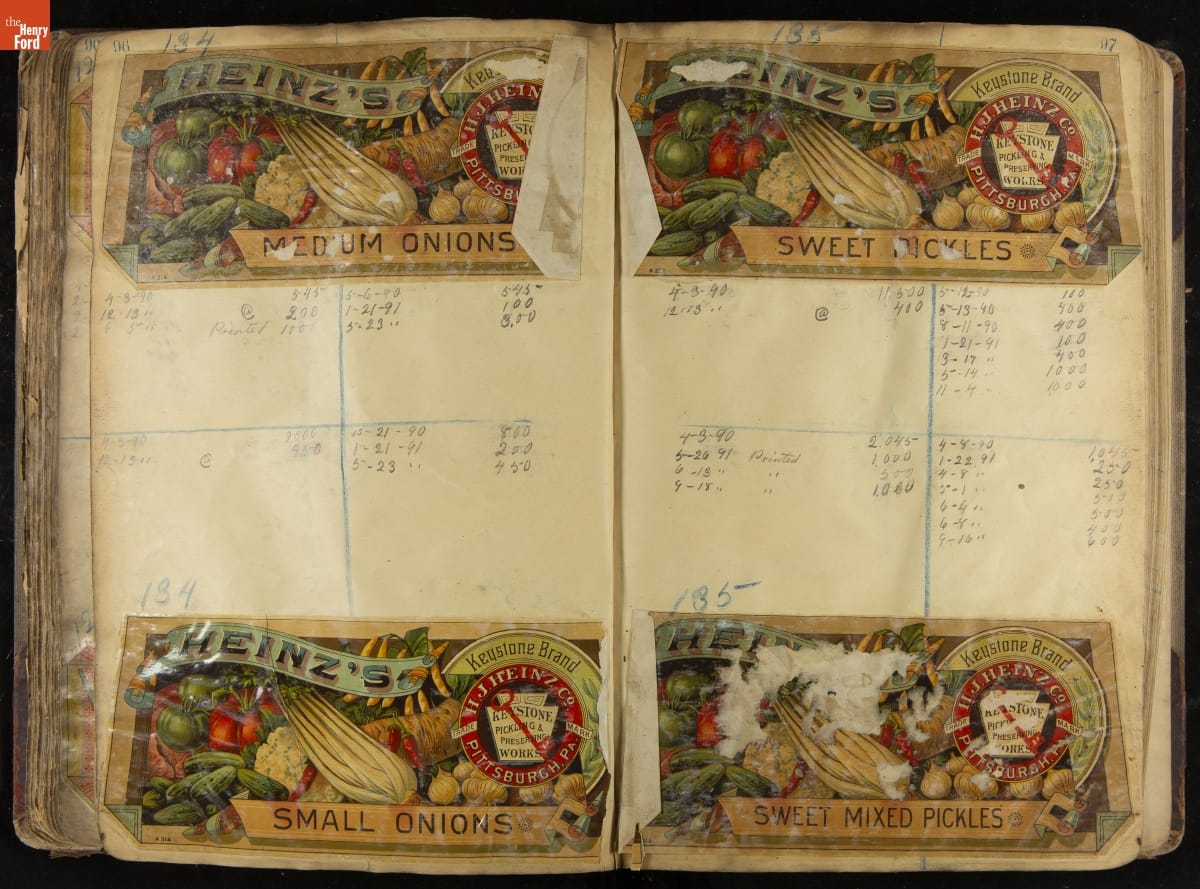 the
Henry
Ford
96
134
HEINZ'S
Keystone
H.J. HEINZ CO.
KEYSTONE
PICKLING &
PRESERVING
WORKS
TRADE
PITTSBURGH
MEDIUM ONIONS
A 314
4-3-90 545
12-13 " @ 200
6 5 " Printed 1001
5-6-90 545
1-21-91 100
5-23 " 3,00
4-3-90
12-13 " @
10-21-90 800
1-21-91 200
5-23 " 450
134
HEINZ'S
Keystone Brand
H.J. HEINZ CO.
TRADE MARK
KEYSTONE
PICKLING &
PRESERVING
WORKS
PITTSBURGH, PA.
SMALL ONIONS
A 314
135
97
INZ'S
Keystone Brand
H.J. HEINZ CO.
TRADE MARK
KEYSTONE
PICKLING &
PRESERVING
WORKS
PITTSBURGH, PA.
SWEET PICKLES
4-3-90 11,500
12-13 " @ 400
5-12-90 100
5-13-90 400
8-11-90 400
1-21-91 100
3-17 " 400
5-14 " 1000
11-4 " 1000
4-3-90 2,045
5-26 91 Printed 1,000
6-13 " " 500
9-18 " " 1,000
4-8-90 1,045
1-22 91 250
4-8 " 250
5-1 " 500
6-4 " 500
6-8 " 400
9-16 " 600
135
HEINZ
Keystone Brand
H.J. HEINZ CO.
TRADE MARK
KEYSTONE
WORKS
PITTSBURGH, PA.
SWEET MIXED PICKLES